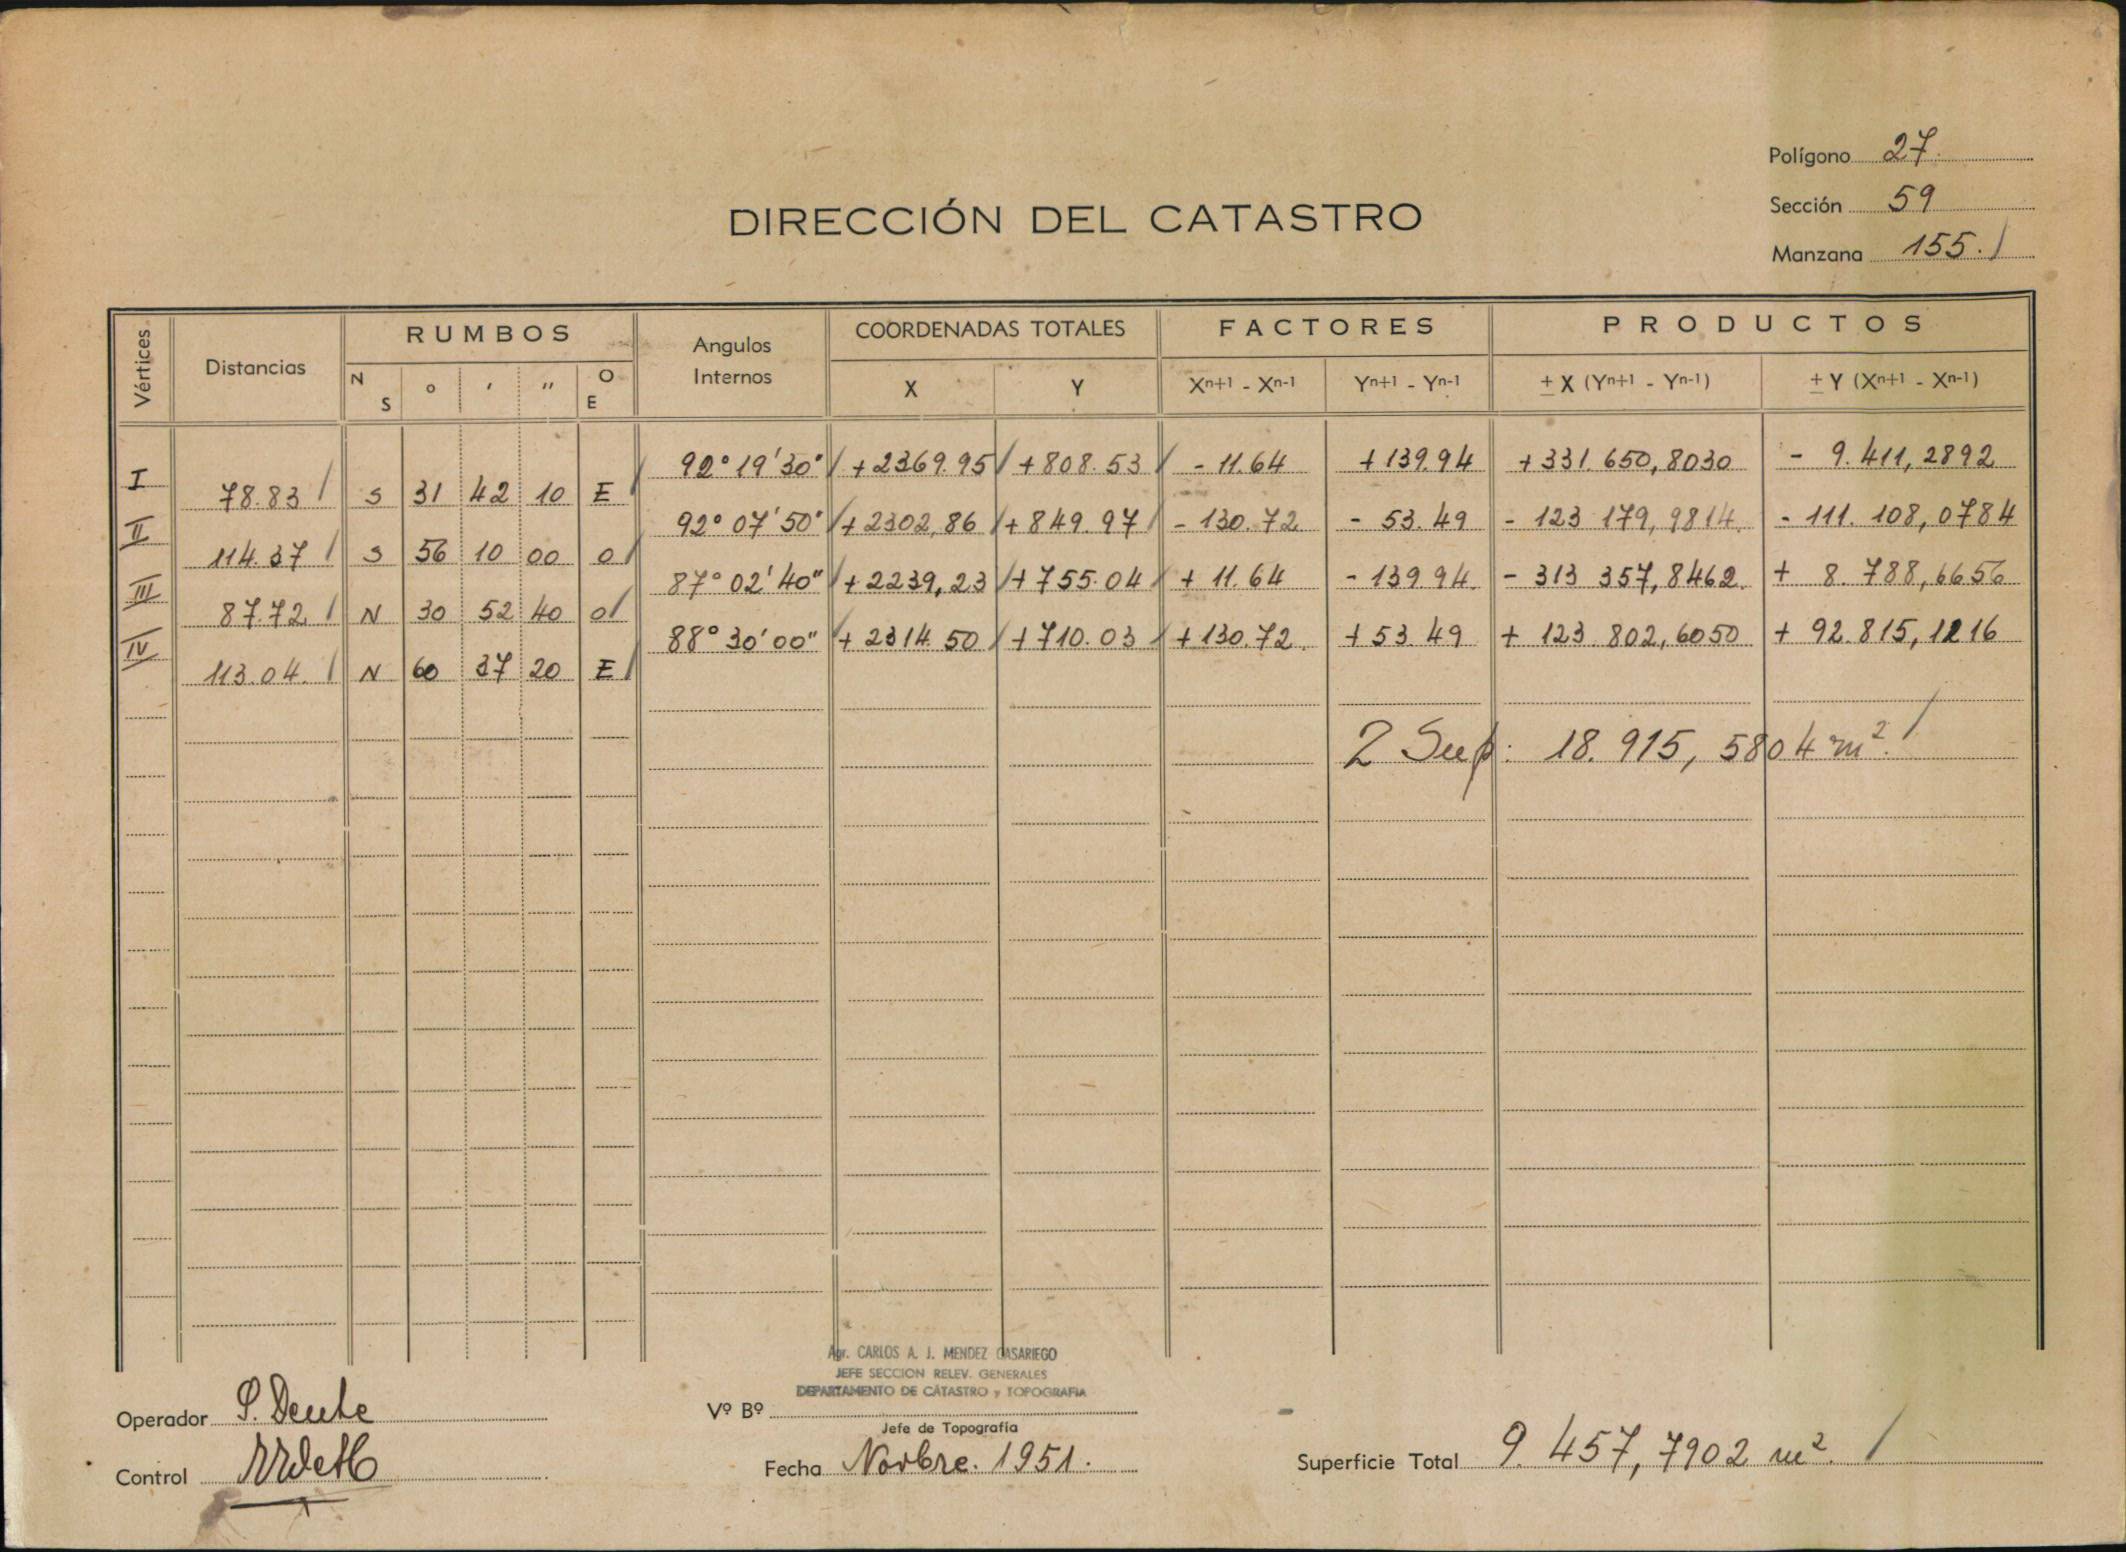 Polígono 27.
Sección 59
Manzana 155.
DIRECCIÓN DEL CATASTRO
Vértices
Distancias
RUMBOS
N S ° ' " O E
Angulos Internos
COORDENADAS TOTALES
X Y
FACTORES
Xn+1 - Xn-1 Yn+1 - Yn-1
PRODUCTOS
± X (Yn+1 - Yn-1) ± Y (Xn+1 - Xn-1)
I 92° 19' 30" +2369.95 +808.53 - 11.64 +139.94 +331.650,8030 - 9.411,2892
78.83 S 31 42 10 E
II 92° 07' 50" +2302,86 +849.97 - 130.72 - 53.49 - 123 179,9814 - 111.108,0784
114.37 S 56 10 00 O
III 87° 02' 40" +2239,23 +755.04 + 11.64 - 139.94 - 313 357,8462 + 8.788,6656
87.72 N 30 52 40 O
IV 88° 30' 00" +2314.50 +710.03 +130.72 +53.49 + 123.802,6050 + 92.815,1216
113.04. N 60 37 20 E
2 Sup: 18.915,5804 m².
Agr. CARLOS A. J. MENDEZ CASARIEGO
JEFE SECCION RELEV. GENERALES
DEPARTAMENTO DE CATASTRO y TOPOGRAFIA
Operador
Vº Bº
Jefe de Topografía
Control
Fecha Novbre. 1951.
Superficie Total 9.457,7902 m².